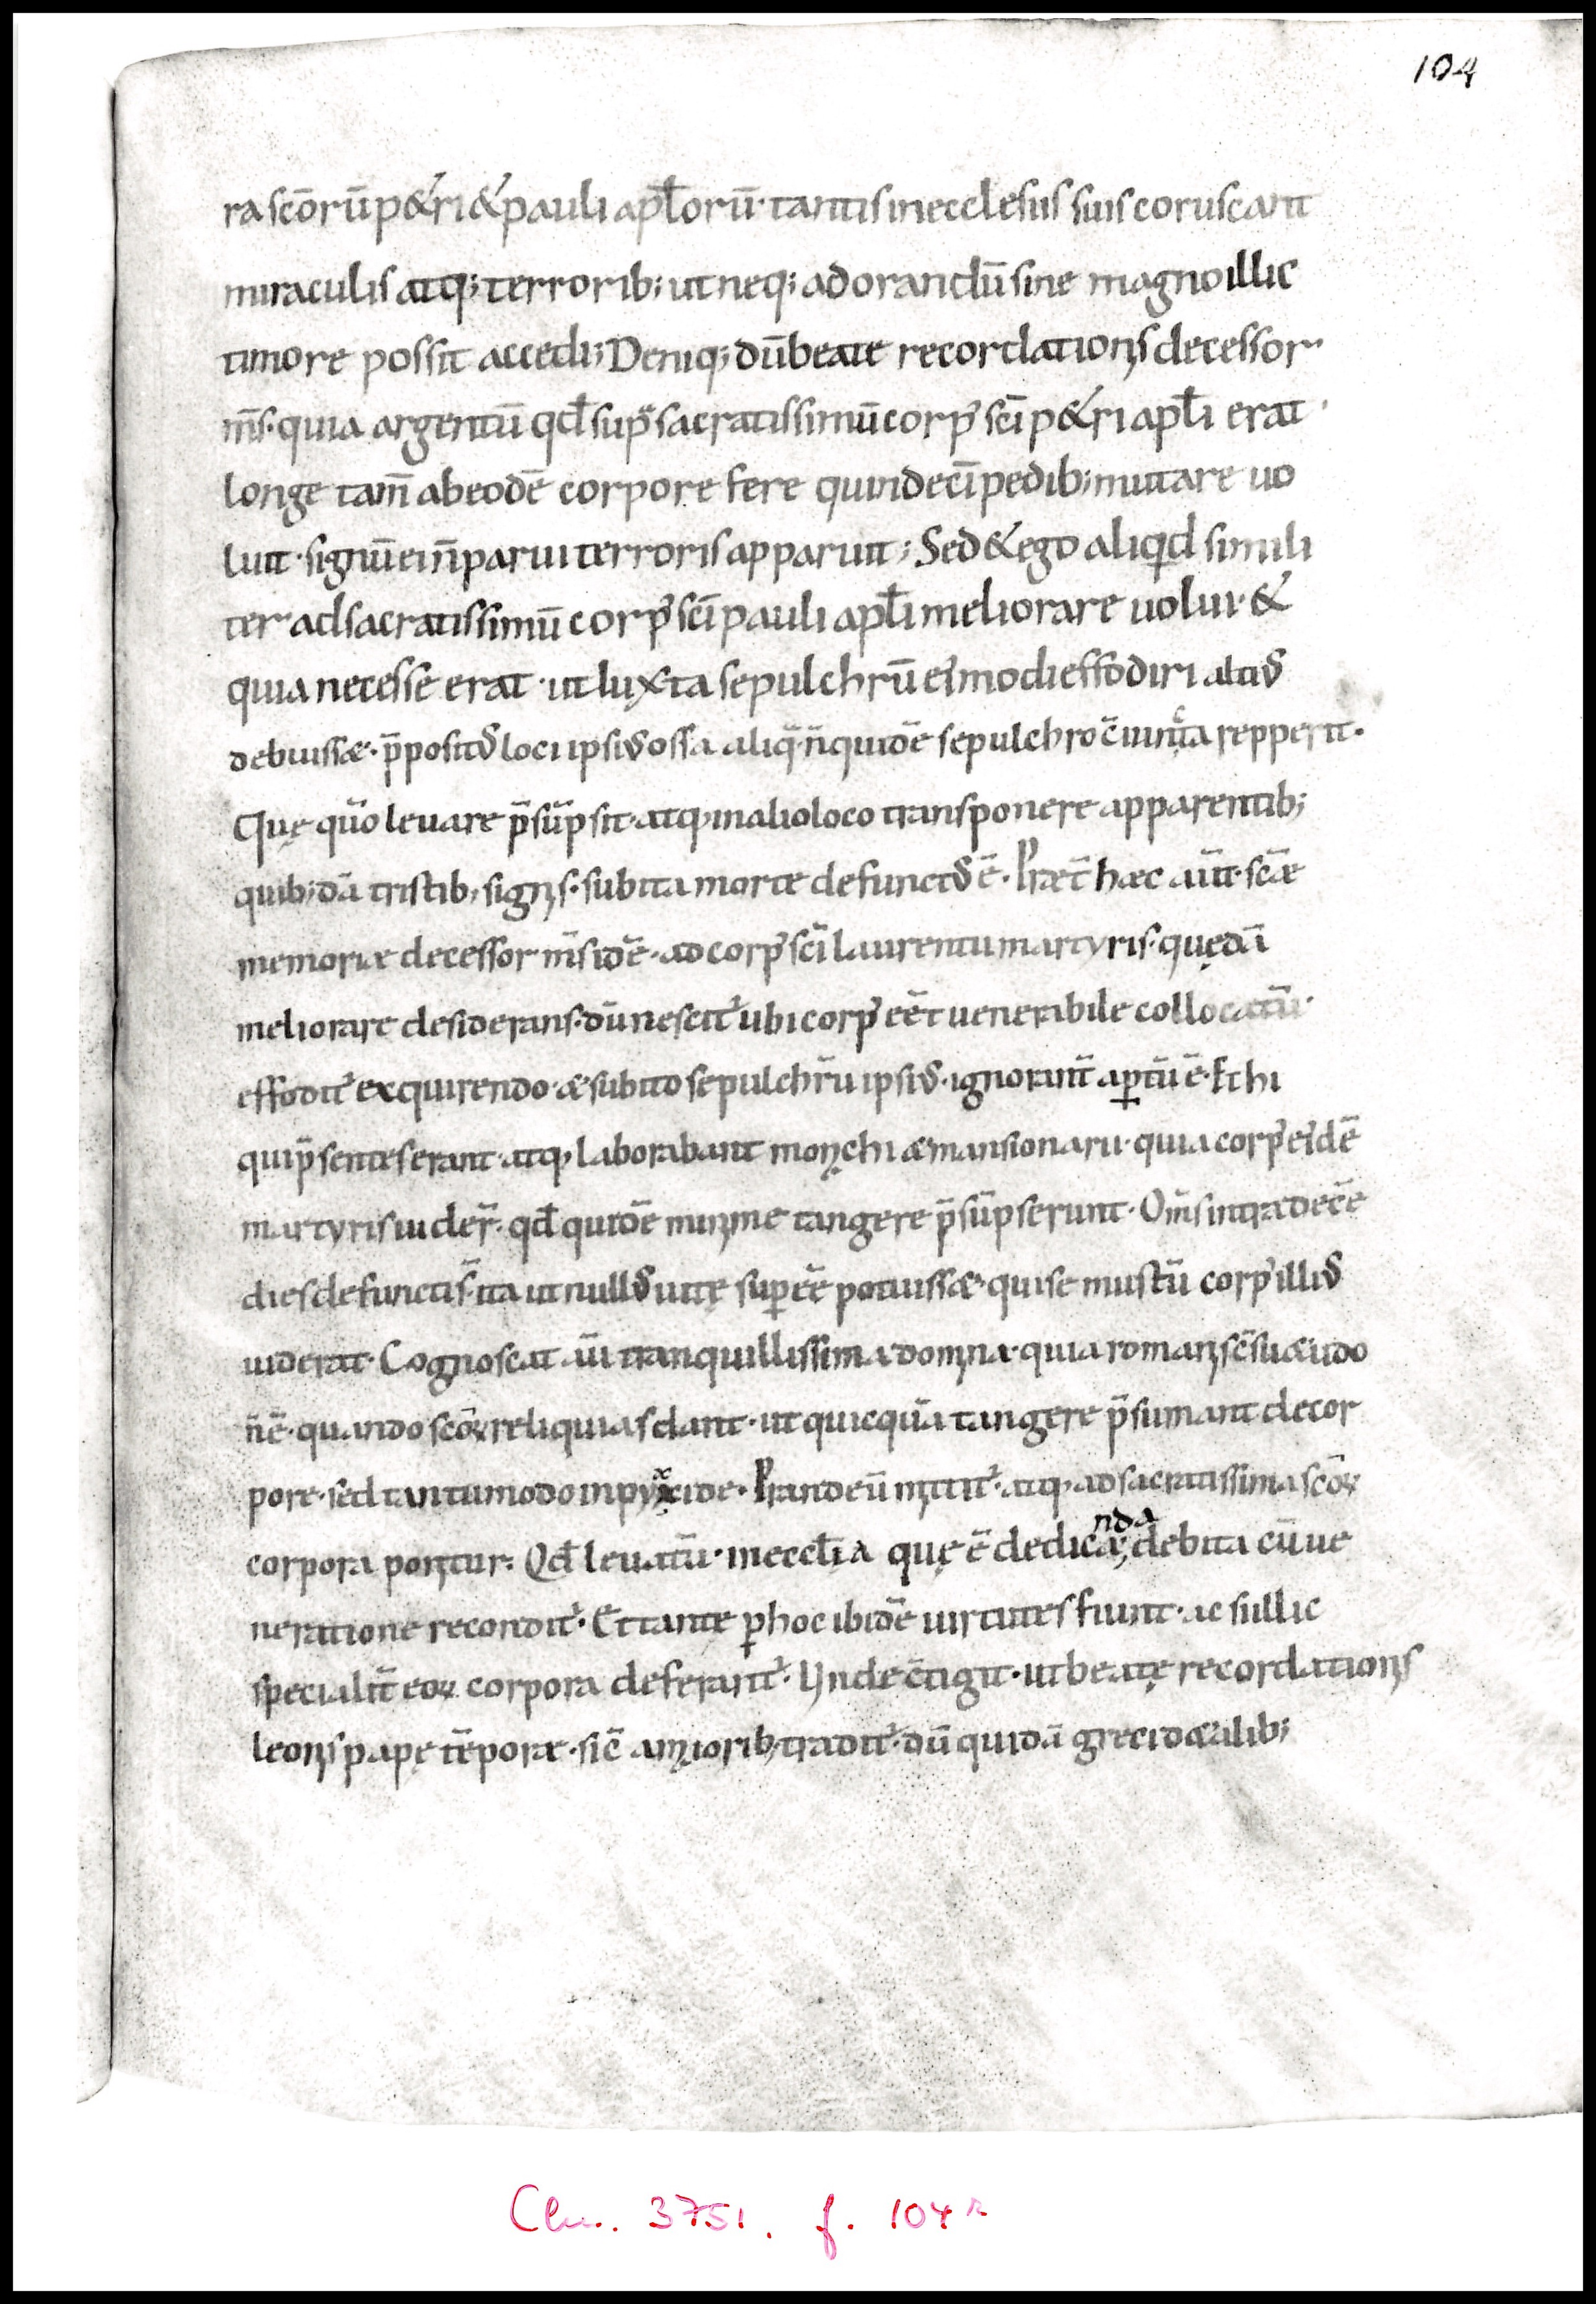 104
ra scōrū p&ri & pauli apl̄orū· tantis in ecclesiis suis coruscant
miraculis atq; terrorib; ut neq; ad orandū sine magno illic
timore possit accedi; Deniq; dū beate recordationis decessor
m̄s· quia argentū qd̄ sup̄ sacratissimū corp' sc̄i p&ri apl̄i erat·
longe tam̄ ab eodē corpore fere quindecī pedib; mutare uo
luit· signū ei n̄ parui terroris apparuit; Sed & ego aliqid simili
ter ad sacratissimū corp' sc̄i pauli apl̄i meliorare uolui· &
quia necesse erat· ut iuxta sepulchrū ei'modi effodiri altius
debuiss&· p̄positus loci ipsius ossa aliq̄ n̄ quidē sepulchro c̄iuncta repperit·
Quę qm̄ leuare p̄sūpsit· atq; in alio loco transponere apparentib;
quib;dā tristib; signis· subita morte defunctus ē· Praet̄ haec aūt· sc̄ae
memoriae decessor m̄s idē· ad corp' sc̄i laurentii martyris· quędā
meliorare desiderans· dū nescit' ubi corp' eēt uenerabile collocatū·
effodit' exquirendo· & subito sepulchrū ipsius· ignorant̄ aptū ē· Et hi
qui p̄sentes erant· atq; laborabant monachi & mansionarii· quia corp' ei'dē
martyris uider̄· qd̄ quidē minime tangere p̄sūpserunt· Om̄s intra decē
dies defuncti s̄· ita ut nullus uitę supeē potuiss&· qui semiustū corp' illius
uiderat· Cognoscat aūt tranquillissima domina· quia romanis c̄su&udo
n̄ ē· quando scōꝝ reliquias dant· ut quicquā tangere p̄sumant de cor
pore· sed tantummodo in pyxide· Prandeū mittit'· atq; ad sacratissima scōꝝ
corpora ponitur· Qd̄ leuatū· in eccl̄ia quę ē dedicanda debita cū ue
neratione recondit'· Et tantę p hoc ibidē uirtutes fiunt· ac si illic
specialit̄ eoꝝ corpora deferant'· Unde c̄tigit· ut beatę recordationis
leonis papę tēpore· sic̄ a maiorib; tradit'· dū quidā greci de talib;
Clm. 3751. f. 104r